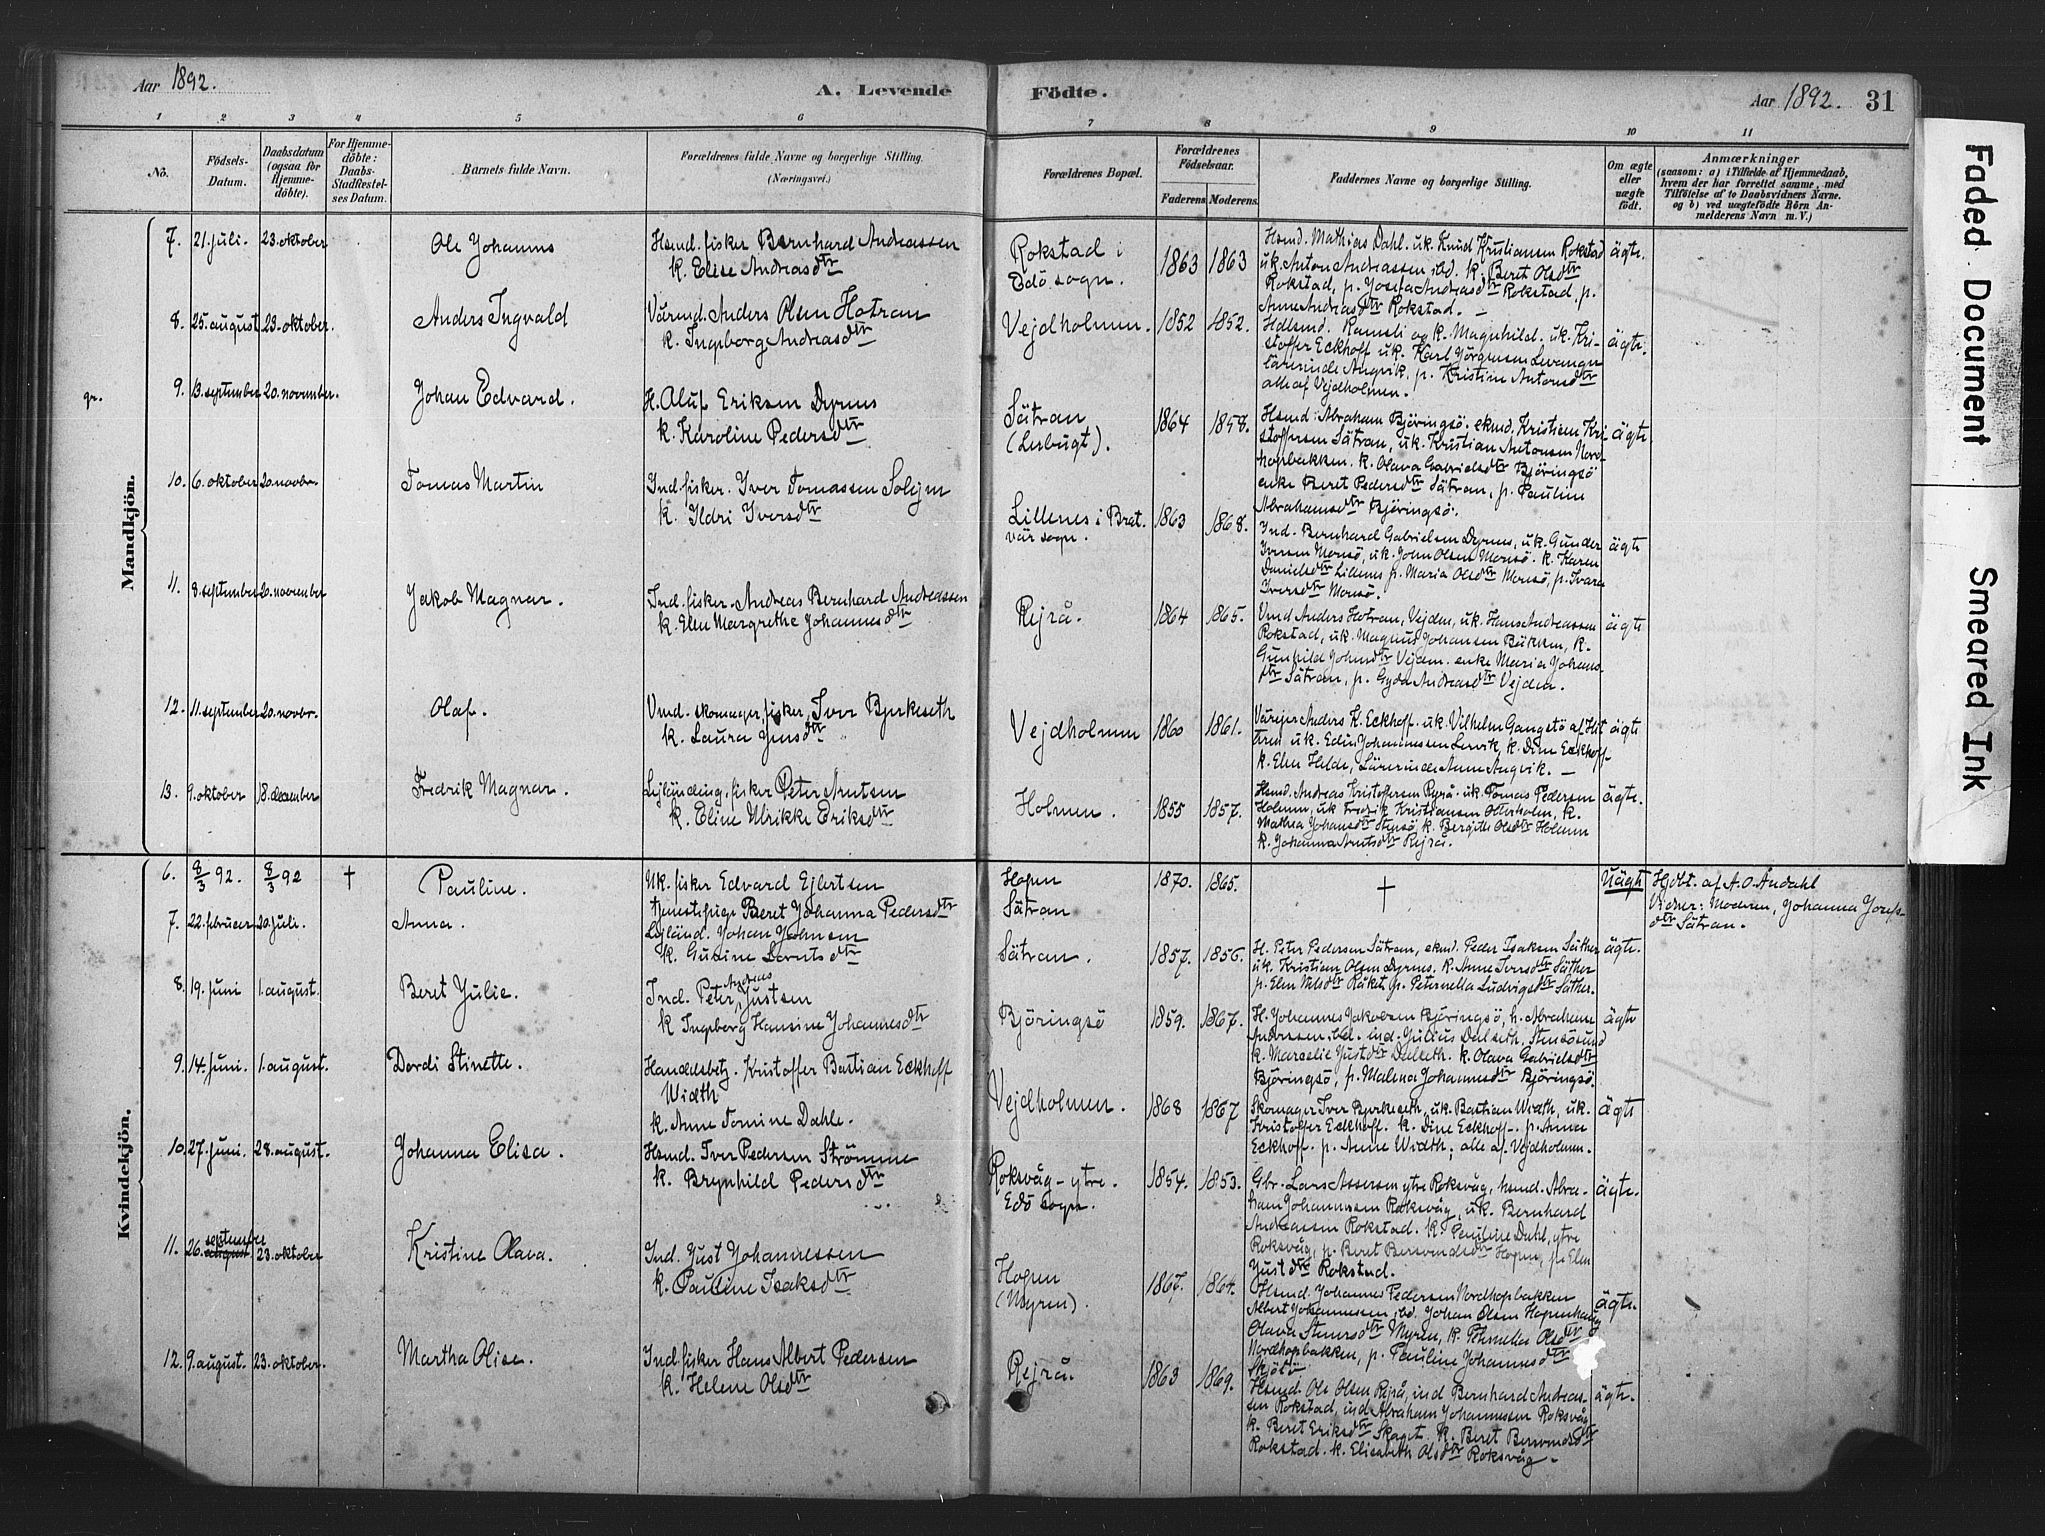 Aar 1892. A. Levende Födte. Aar 1892. 31
1 2 3 4 5 6 7 8 9 10 11
No. Födsels-Datum. Daabsdatum (ogsaa for Hjemme-döbte). For Hjemme-döbte: Daabs-Stadfæstel-ses Datum. Barnets fulde Navn. Forældrenes fulde Navne og borgerlige Stilling. (Næringsvei.) Forældrenes Bopæl. Forældrenes Födselsaar. Faderens Moderens. Faddernes Navne og borgerlige Stilling. Om ægte eller uægte födt. Anmærkninger (saasom: a) i Tilfælde af Hjemmedaab, hvem der har forrettet samme, med Tilföielse af to Daabsvidners Navne. og b) ved uægtefödte Börn An-melderens Navn m. V.)
Mandkjön.
7. 21. juli. 23. oktober Ole Johannes
Hsmd. fisker Bernhard Andreassen
k. Elise Andreasdtr
Rokstad i
Edö sogn.
1863 1863
Hsmd. Mathias Dahl. uk. Knud Kristiansen Rokstad
uk. Anton Andreassen ibd. k. Beret Olsdtr
Rokstad, p. Josefa Andreasdtr Rokstad, p.
Anne Andreasdtr Rokstad. —
ägte.
8. 25. august 23. oktober. Anders Ingvald
Värmd. Anders Olsen Hotran
k. Ingeborg Andreasdtr
Vejdholmen. 1852 1852.
Hdlsmd. Ramsli og k. Magnhild. uk. Kri-
stoffer Eckhoff uk. Karl Jörgensen Levanger
lärerinde Angvik. p. Kristine Antonsdtr
alle af Vejdholmen.
ägte.
gr. 9. 13. september 20. november. Johan Edvard.
H. Aluf Eriksen Dyrnes
k. Karoline Pedersdtr
Sätran
(Lerbugt).
1864 1858.
Hsmd. Abraham Björingsö. ekmd. Kristian Kri-
stoffersen Sätran, uk. Kristian Antonsen Nord-
hopbakken. k. Olava Gabrielsdtr Björingsö
enke Beret Pedersdtr Sätran, p. Pauline
Abrahamsdtr Björingsö.
ägte.
10. 6. oktober 20. novbr. Tomas Martin
Ind. fisker. Iver Tomassen Solejm
k. Ildri Iversdtr
Lillenes i Brat.
vär sogn.
1863 1868.
Ind. Bernhard Gabrielsen Dyrnes, uk. Gunder
Iversen Monsö, uk. John Olsen Monsö. k. Karen
Danielsdtr Lillenes p. Maria Olsdtr Monsö, p. Ivara
Iversdtr Monsö.
ägte
11. 8. september 20. november Jakob Magnar.
Ind. fisker. Andreas Bernhard Andreassen
k. Elen Margrethe Johannesdtr
Rejrå. 1864 1865.
Vmd Anders Hotran, Vejden, uk. Hans Andreassen
Rokstad, uk. Magnus Johansen Bükken, k.
Gunhild Johnsdtr Vejdem. enke Maria Johans-
dtr Sätran, p. Gyda Andreasdtr Vejden.
ägte
12. 11. september 20. novbr. Olaf.
Vmd. skomager, fisker, Iver Bjerkeseth
k. Laura Jensdtr
Vejdholmen 1860 1861.
Värejer Anders K. Eckhoff. uk. Vilhelm Gangstö af Hit
tren uk. Edin Johannessen Lervik, k. Dine Eckhoff-
k. Elen Helde, Lärerinde Anne Angvik. —
ägte
13. 9. oktober 18. december Fredrik Magnar.
Lejländing, fisker Peter Arntsen
k. Eline Ulrikke Eriksdtr
Holmen. 1855 1857.
Hsmd. Andreas Kristoffersen Rejrå. uk. Tomas Pedersen
Holmen, uk Fredrik Kristiansen Otterholm, k.
Mathea Johansdtr Stensö, k. Bergitte Olsdtr Holmen
k. Johanna Arntsdtr Rejrå.
ägte.
Kvindekjön.
6. 8/3 92. 8/3 92 † Pauline.
Uk. fisker Edvard Ejlertsen
tjenestepige Beret Johanna Pedersdtr
Hopen
Sätran
1870. 1865. † Uägte
Hjdbt. af A. O. Audahl
Vidner: Moderen, Johanna Josefs-
dtr Sätran.
7. 22. februar 20. juli. Anna.
Lejländ. Johan Johnsen
k. Gurine Berntsdtr
Sätran. 1857. 1856.
H. Peter Pedersen Sätran, ekmd. Peder Isaksen Säther
uk. Kristian Olsen Dyrnes. k. Anne Iversdtr Säther
p. Elen Nilsdtr Råket, p. Peternella Ludvigsdtr Säther.
ägte.
8. 19. juni 1. august. Beret Julie.
Ind. Peter Andreas Justsen
k Ingeborg Hansine Johannesdtr
Björingsö 1859. 1867.
H. Johannes Jakobsen Björingsö, h. Abraham
Andersen ibd. ind. Julius Dalseth, Stensösund
k. Marselie Justdtr Dalseth. k. Olava Gabrielsdtr
Björingsö, p. Malena Johannesdtr Björingsö.
ägte
9. 14. juni. 1. august. Dordi Stinette.
Handelsbetj. Kristoffer Bastian Eckhoff
Width
k. Anne Tomine Dahle.
Vejdholmen. 1868 1867
Skomager Iver Bjerkeseth, uk. Bastian Width, uk.
Kristoffer Eckhoff. k. Dine Eckhoff. p. Anna
Eckhoff. p. Anne Width; alle af Vejdholmen.
ägte
10. 27. juni. 28. august. Johanna Elisa.
Hsmd. Iver Pedersen Strömme
k. Brynhild Pedersdtr
Roksvåg - ytre.
Edö sogn.
1854. 1853.
Gbr. Lars Assersen ytre Roksvåg, hsmd. Abra-
ham Johannesen Roksvåg, uk. Bernhard
Andreassen Rokstad. k. Pauline Dahl, ytre
Roksvåg, p. Beret Bersvendsdtr Hopen, p. Elen
Justdtr Rokstad.
ägte.
11. 26. september august 23. oktober Kristine Olava.
Ind. Just Johannessen
k. Pauline Isaksdtr
Hopen
(Myren).
1867. 1864.
Hsmd. Johannes Pedersen Nordhopbakken
Albert Johannessen ibd. Johan Olsen Hopenhaug
Olava Stenersdtr Myren, k. Petrnelia Olsdtr
Nordhopbakken, p. Pauline Johannesdtr
Skjölö
ägte.
12. 9. august. 23. oktober. Martha Olise.
Ind. fisker Hans Albert Pedersen
k. Helene Olsdtr
Rejrå. 1863 1869.
Hsmd. Ole Olsen Rejrå, ind Bernhard Andreas-
sen Rokstad, ind Abraham Johannessen Roksvåg
k. Beret Eriksdtr Skaget. k. Beret Bersvendsdtr
Rokstad. k. Elisabeth Olsdtr Roksvåg.
ägte.
Faded Document
Smeared Ink